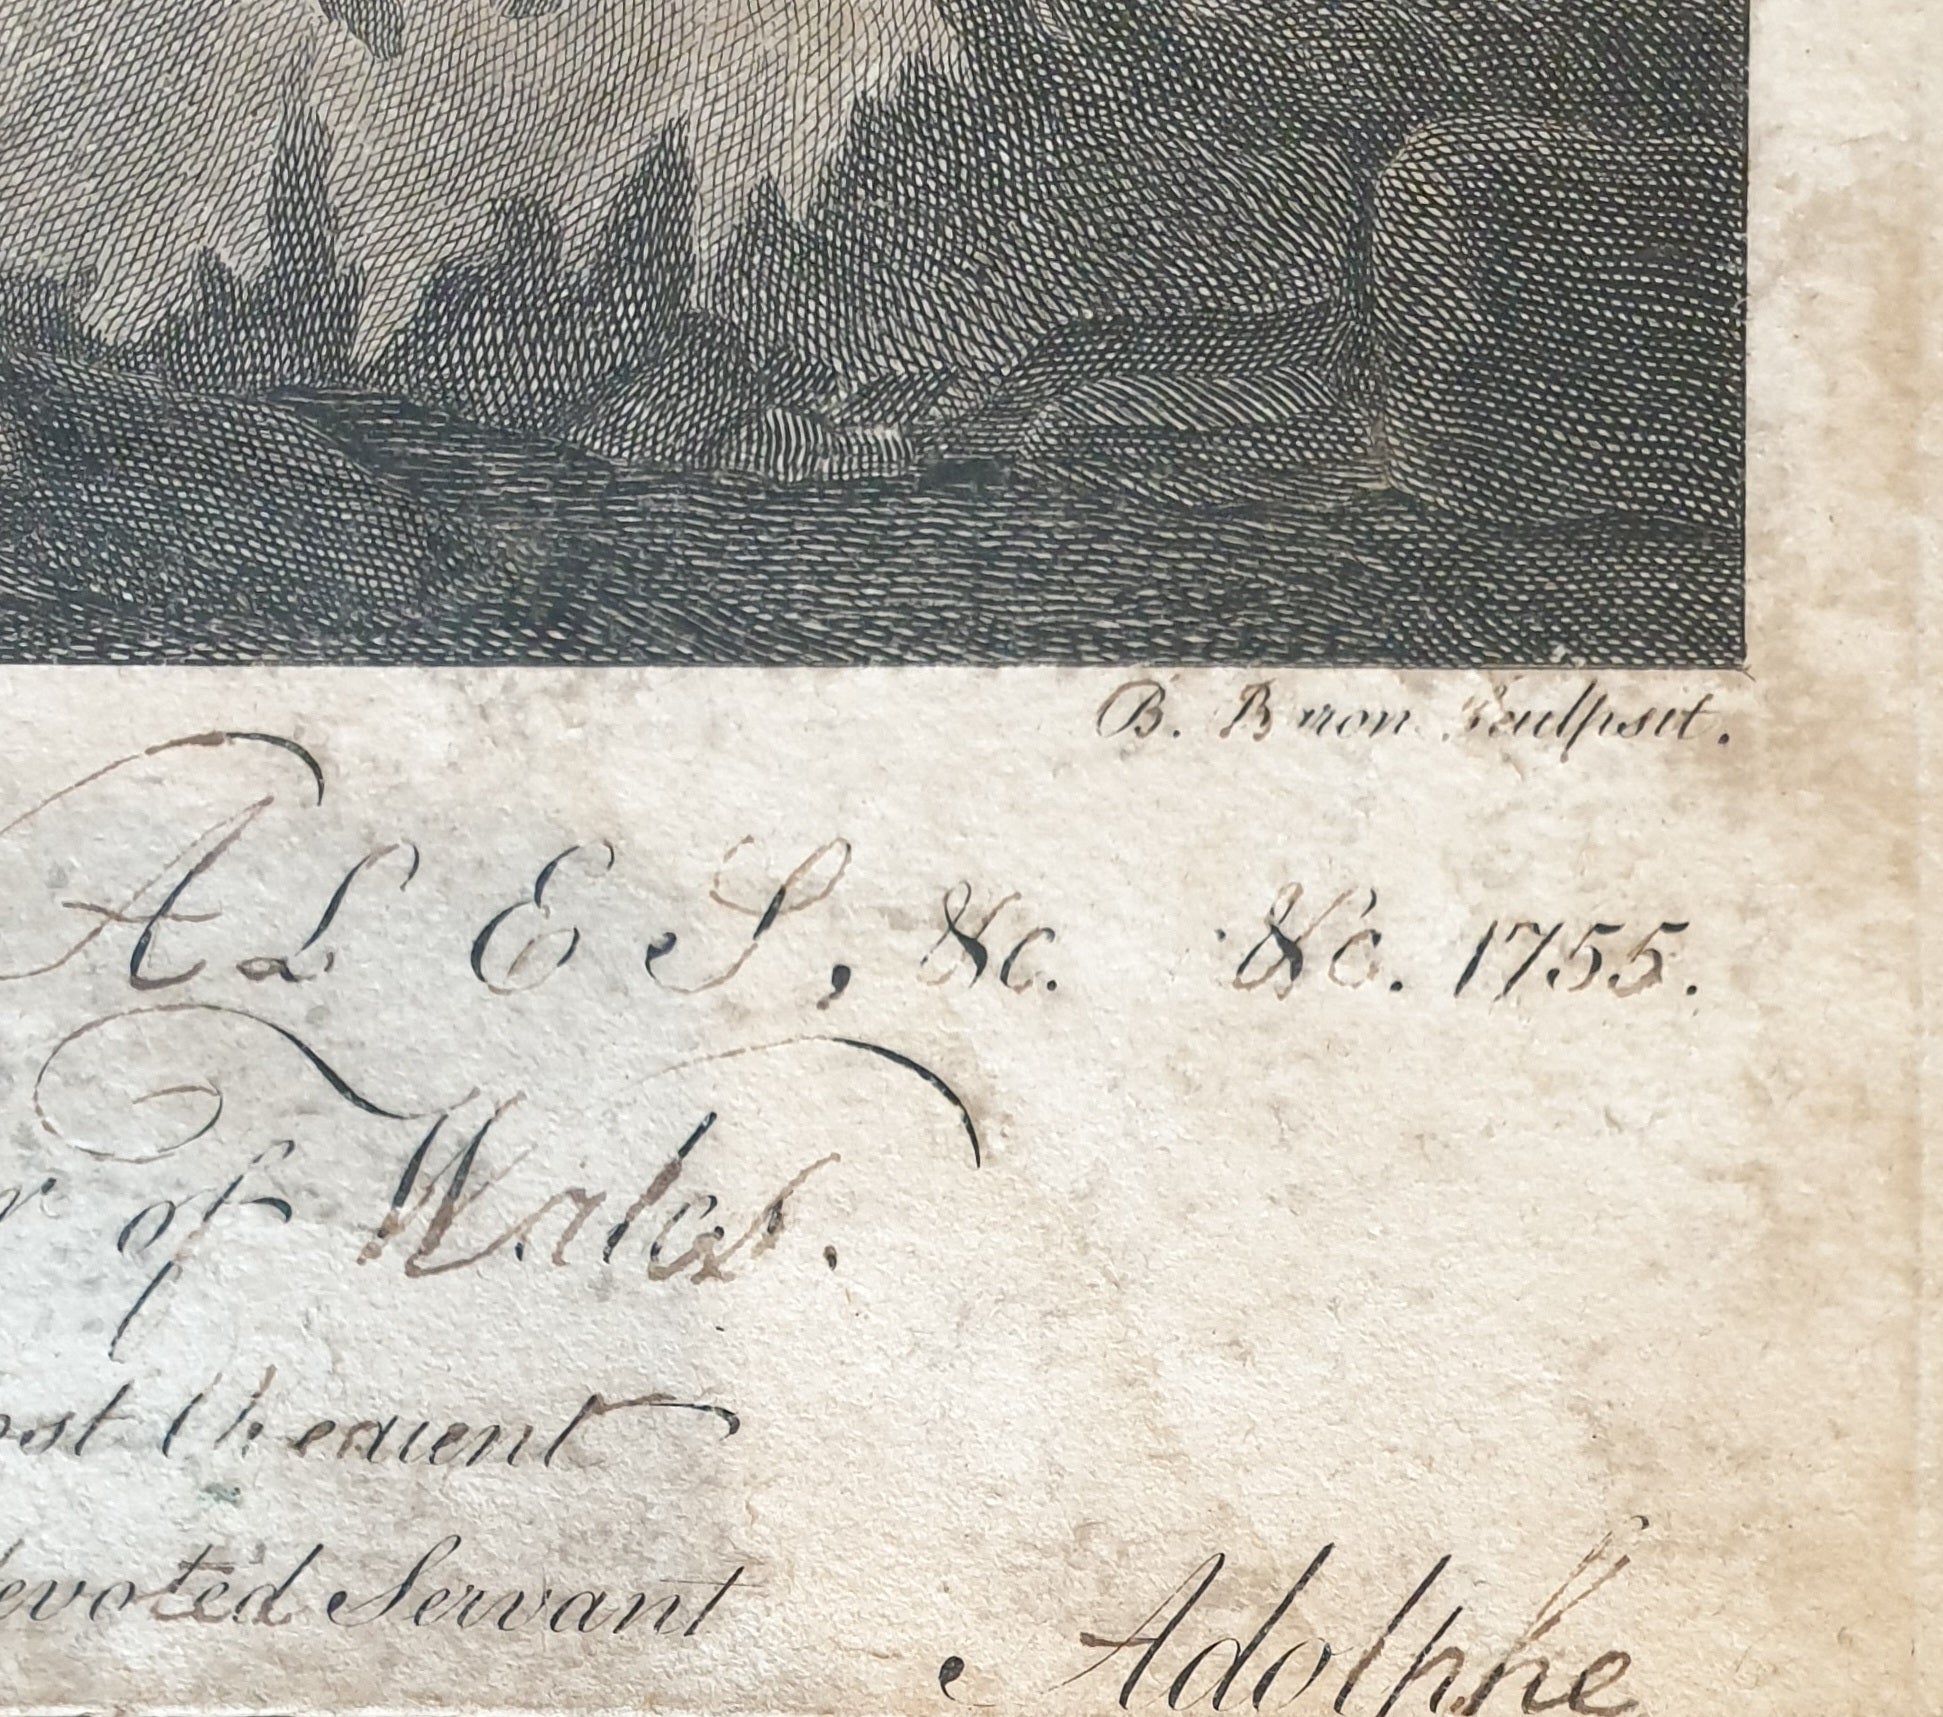 B. Baron Sculpsit.
ALES, &c. &c. 1755.
r of Wales.
ost Obedient
devoted Servant
Adolphe